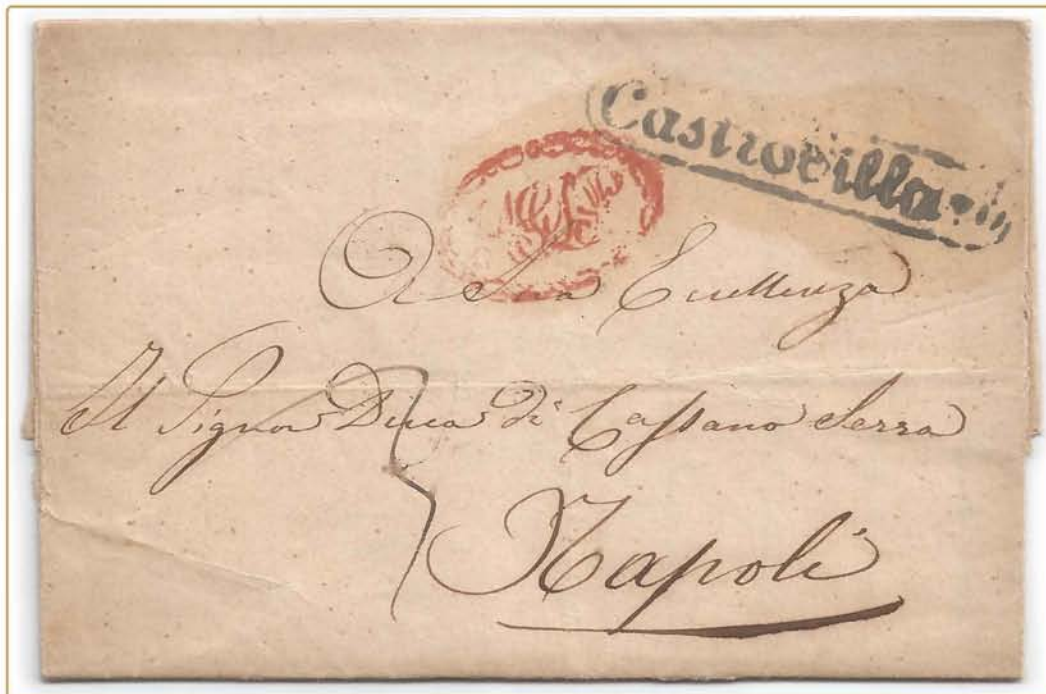 Castrovillari
A Sua Eccellenza
Il Signor Duca di Cassano Serra
Napoli